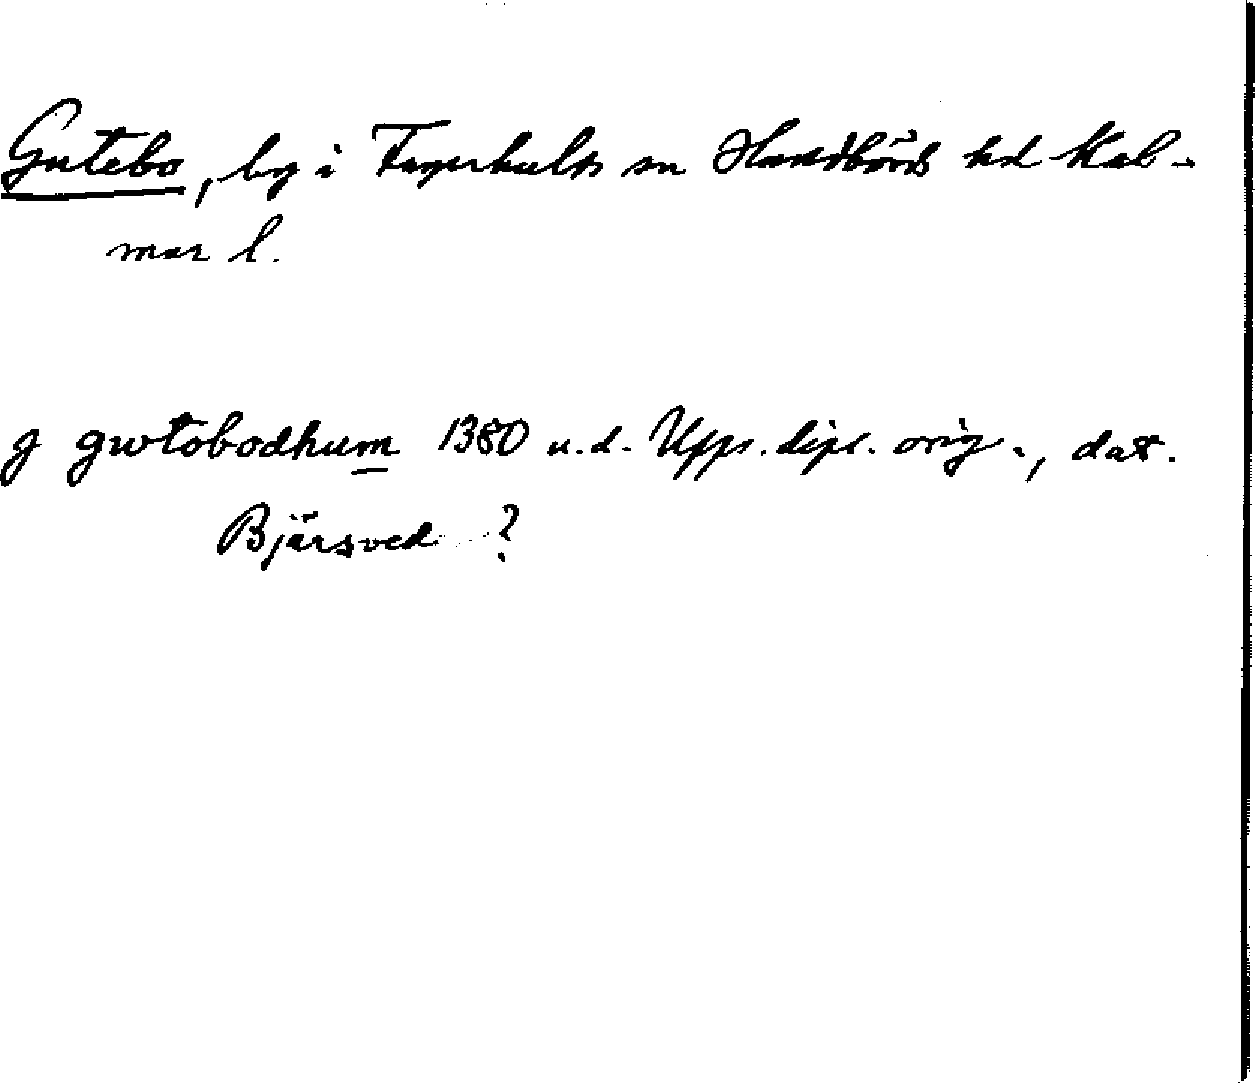 Gutebo, by i Fagerhults sn Handbörds hd Kal-
mar l.
g gwtobodhum 1380 u.d. Upps. dipl. orig., dat.
Bjärsved ?